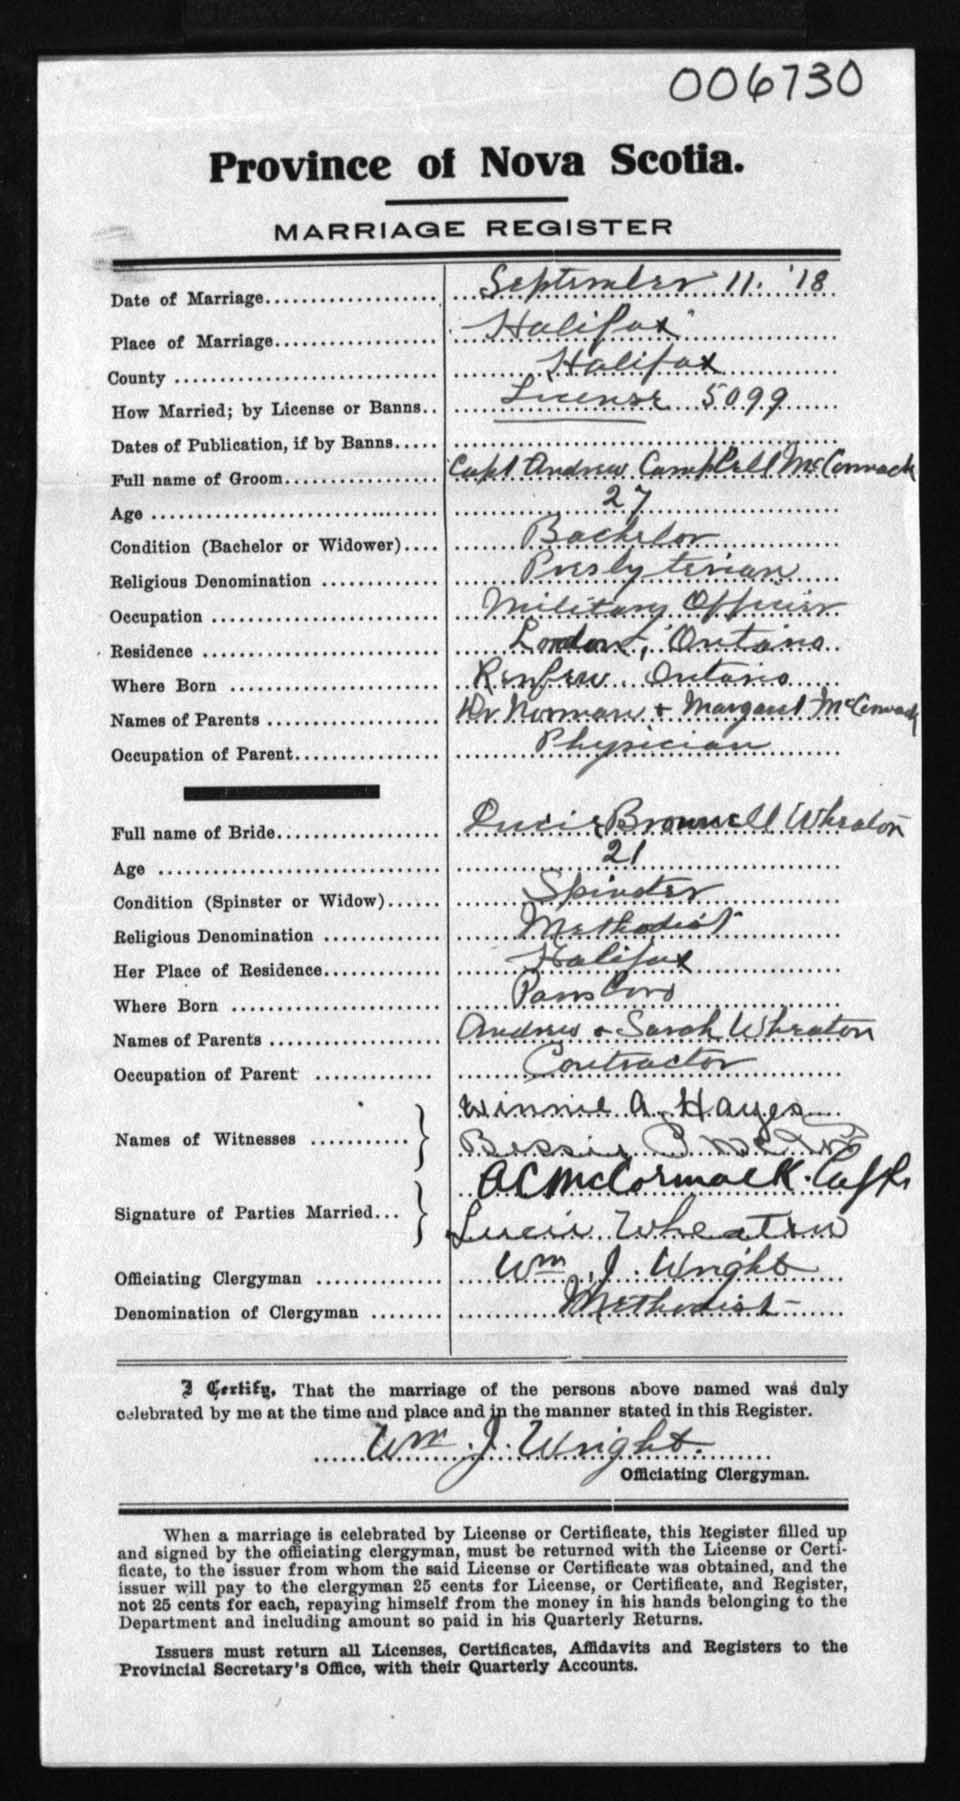 006730
Province of Nova Scotia.
MARRIAGE REGISTER
Date of Marriage September 11. '18
Place of Marriage Halifax
County Halifax
How Married; by License or Banns License 5099
Dates of Publication, if by Banns
Full name of Groom Capt Andrew Campbell McCormack
Age 27
Condition (Bachelor or Widower) Bachelor
Religious Denomination Presbyterian
Occupation Military Officer
Residence London, Ontario
Where Born Renfrew Ontario
Names of Parents Dr Norman + Margaret McCormack
Occupation of Parent Physician
Full name of Bride Lucie Brownell Wheaton
Age 21
Condition (Spinster or Widow) Spinster
Religious Denomination Methodist
Her Place of Residence Halifax
Where Born
Names of Parents Andrew + Sarah Wheaton
Occupation of Parent Contractor
Names of Witnesses Winnie A. Hayes
Bessie
Signature of Parties Married A C McCormack.
Lucie Wheaton
Officiating Clergyman Wm. J. Wright
Denomination of Clergyman Methodist
I Certify, That the marriage of the persons above named was duly
celebrated by me at the time and place and in the manner stated in this Register.
Wm. J. Wright.
Officiating Clergyman.
When a marriage is celebrated by License or Certificate, this Register filled up
and signed by the officiating clergyman, must be returned with the License or Certi-
ficate, to the issuer from whom the said License or Certificate was obtained, and the
issuer will pay to the clergyman 25 cents for License, or Certificate, and Register,
not 25 cents for each, repaying himself from the money in his hands belonging to the
Department and including amount so paid in his Quarterly Returns.
Issuers must return all Licenses, Certificates, Affidavits and Registers to the
Provincial Secretary's Office, with their Quarterly Accounts.